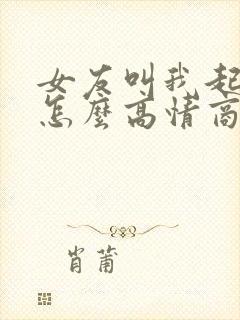 女友叫我起
怎麼高情商
肖莆